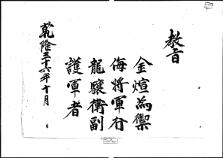 敎旨
金煊為禦
侮將軍行
龍驤衛副
護軍者
乾隆三十六年十月